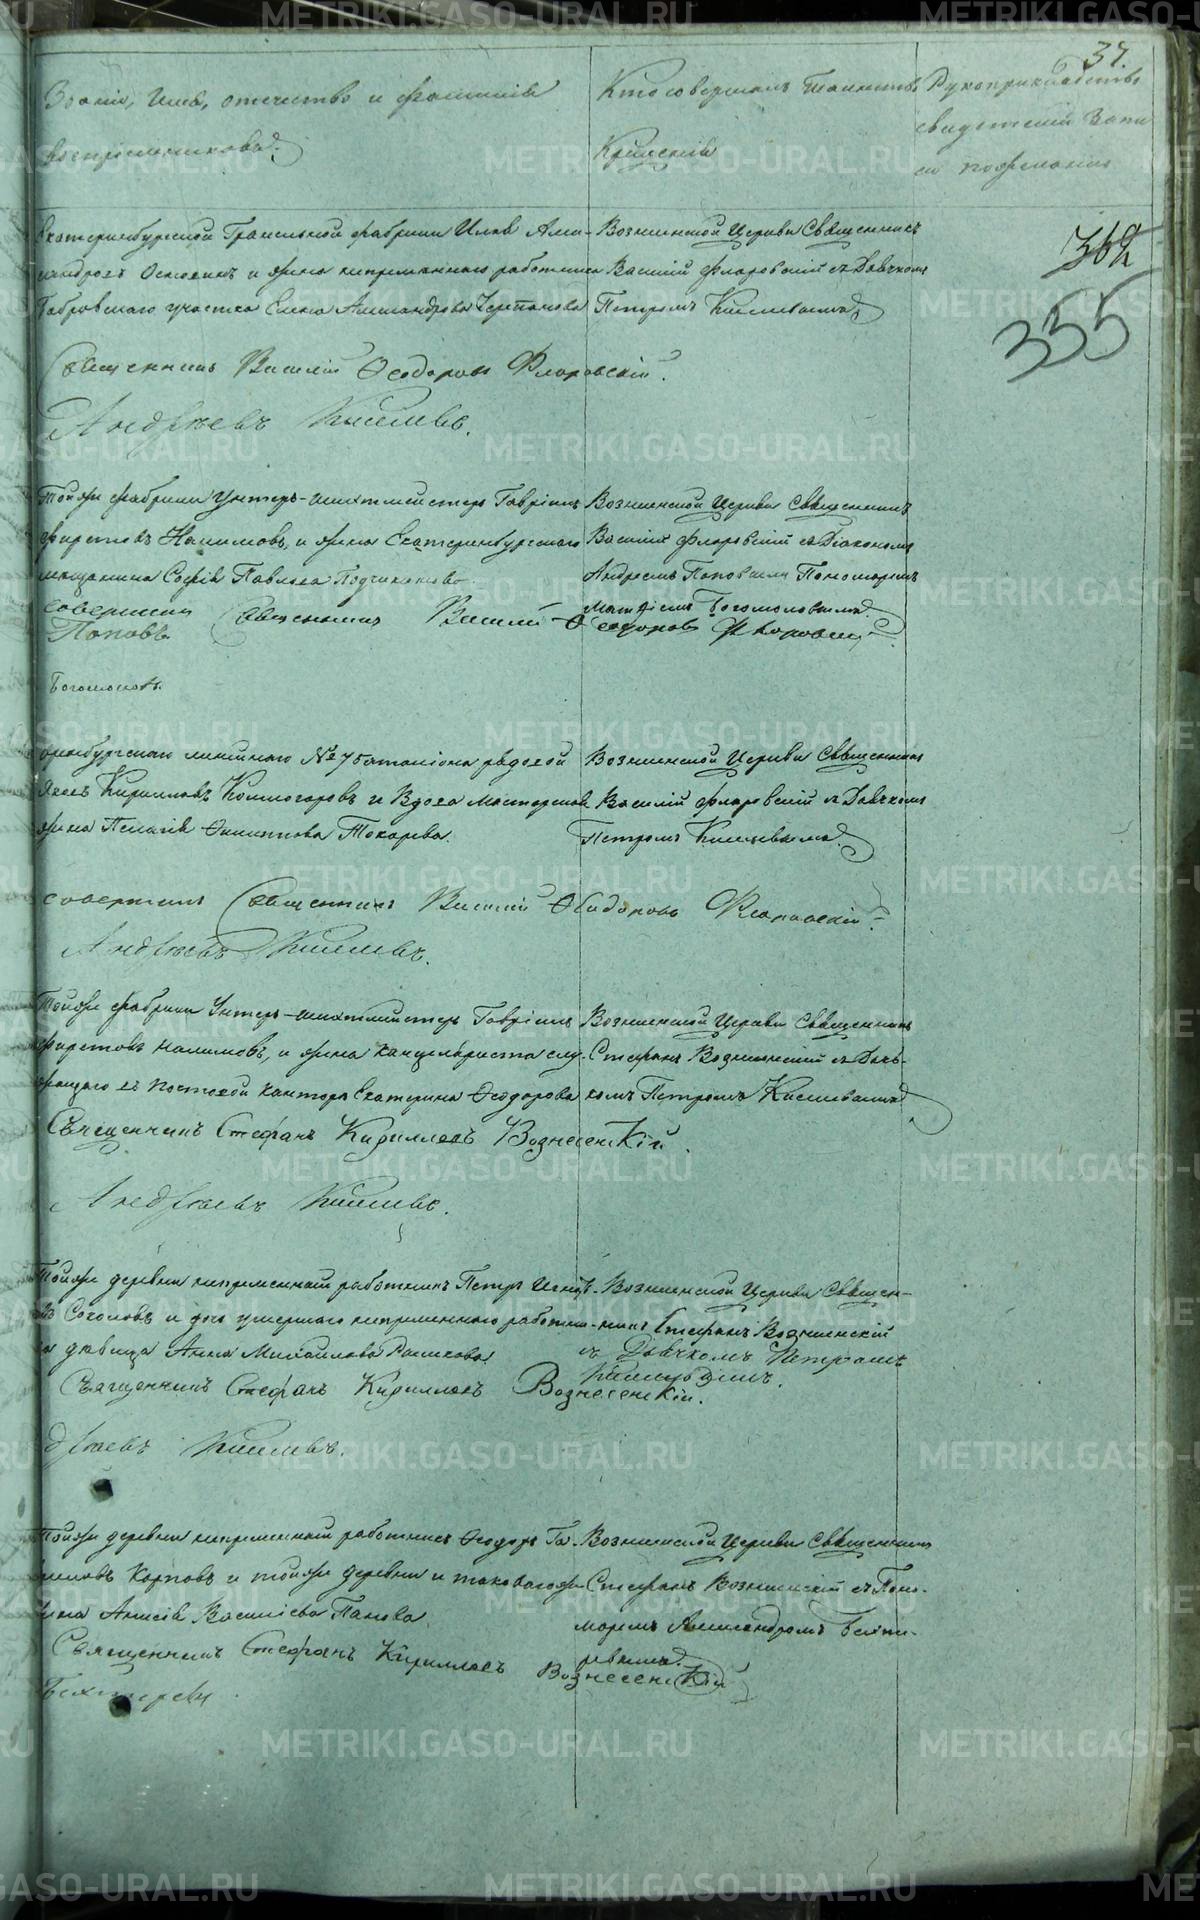 37.
Званіе, имя, отчество и фамилія
воспріемниковъ.
Кто совершалъ таинство
Крещенія
Рукоприкладство
свидетелей записи
по желанію
362
355
Екатеринбургской Гранильной фабрики Илья Але-
ксандровъ и жена непременнаго работника
участка Елена Александрова Черепанова
Вознесенской Церкви Священникъ
Василій Флоровскій съ Дьячкомъ
Петромъ Киселевымъ
Священникъ Василій Ѳеодоровъ Флоровскій.
Андреевъ Киселевъ.
Тойже фабрики Унтеръ-шихтмейстеръ Гавріилъ
Налимовъ, и жена Екатеринбургскаго
мещанина Софія Павлова
Вознесенской Церкви Священникъ
Василій Флоровскій съ Діакономъ
Андреемъ Поповымъ Пономаремъ
Богомоловымъ
совершили Священникъ Василій Ѳеодоровъ Флоровскій
Поповъ
Богомоловъ.
оренбургскаго линейнаго №7 баталіона рядовой
Яковъ Кирилловъ Колмогоровъ и Вдова мастерская
жена Пелагія Филиппова Токарева.
Вознесенской Церкви Священникъ
Василій Флоровскій съ Дьячкомъ
Петромъ Киселевымъ
совершилъ Священникъ Василій Ѳеодоровъ Флоровскій
Андреевъ Киселевъ.
Тойже фабрики Унтеръ-шихтмейстеръ Гавріилъ
Налимовъ, и жена канцеляриста слу-
жащаго въ почтовой канторе Екатерина Ѳеодорова
Вознесенской Церкви Священникъ
Стефанъ Вознесенскій съ Дьяч-
комъ Петромъ Киселевымъ
Священникъ Стефанъ Кирилловъ Вознесенскій.
Андреевъ Киселевъ.
Тойже деревни непременный работникъ Петръ
Соколовъ и дочь умершаго непременнаго работни-
ка девица Анна Михайлова
Вознесенской Церкви Священ-
никъ Стефанъ Вознесенскій
съ Дьячкомъ Петромъ
Киселевымъ.
Священникъ Стефанъ Кирилловъ Вознесенскій.
дреевъ Киселевъ.
Тойже деревни непременный работникъ Ѳеодоръ
Карповъ и тойже деревни и таковагоже
жена Анисія Василіева Панова
Вознесенской Церкви Священникъ
Стефанъ Вознесенскій съ Поно-
маремъ Александромъ Бехте-
ревымъ
Священникъ Стефанъ Кирилловъ Вознесенскій
Бехтеревъ
METRIKI.GASO-URAL.RU